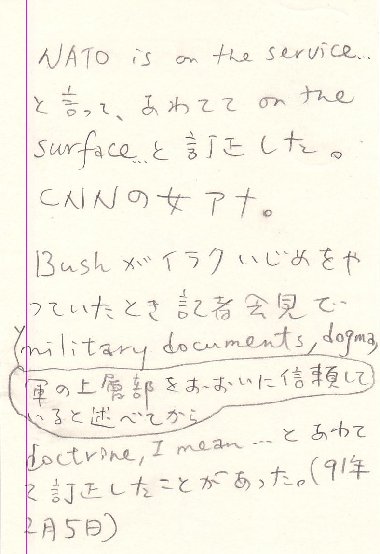 NATO is on the service…
と言って、あわてて on the
surface…と訂正した。
CNNの女アナ。
Bushがイラクいじめをや
っていたとき記者会見で…
military documents, dogma,
軍の上層部をおおいに信頼して
いると述べてから
doctrine, I mean…とあわて
て訂正したことがあった。(91年
2月5日)